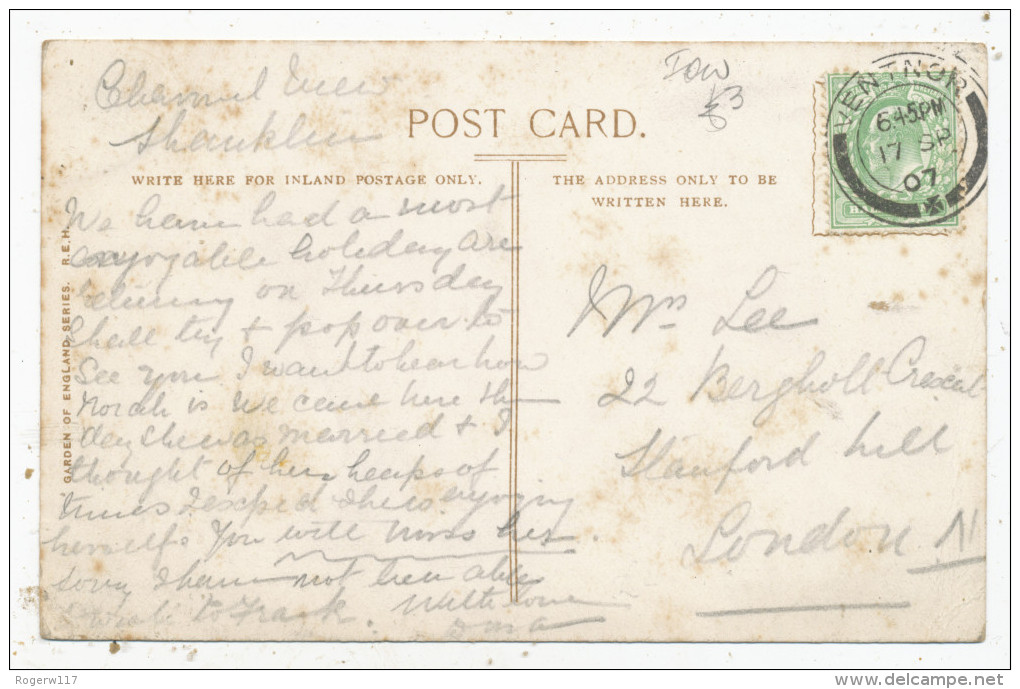 Channel View
Shanklin
IOW
£3
POST CARD.
WRITE HERE FOR INLAND POSTAGE ONLY.
THE ADDRESS ONLY TO BE
WRITTEN HERE.
VENTNOR
6.45PM
17 SP
07
GARDEN OF ENGLAND SERIES. R.E.H.
We have had a most
enjoyable holiday are
on Thursday
Shall try & pop over to
See you I want to hear how
Norah is we came here the
day she was married & I
thought of her heaps of
times I expect she is enjoying
herself. You will miss her
sorry I have not been able
to Frank. With love
Mrs Lee
22 Bergholt Crescent
Stamford hill
London N
Rogerw117